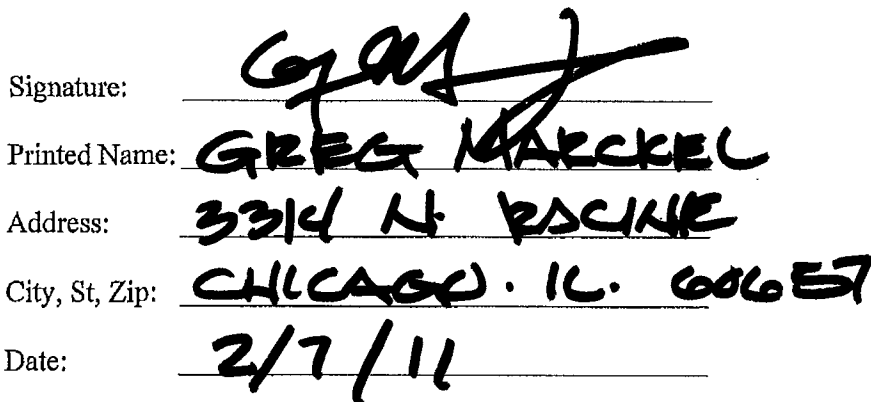 Signature:
Printed Name: GREG MARCKEL
Address: 3314 N. RACINE
City, St, Zip: CHICAGO. IL. 60657
Date: 2/7/11